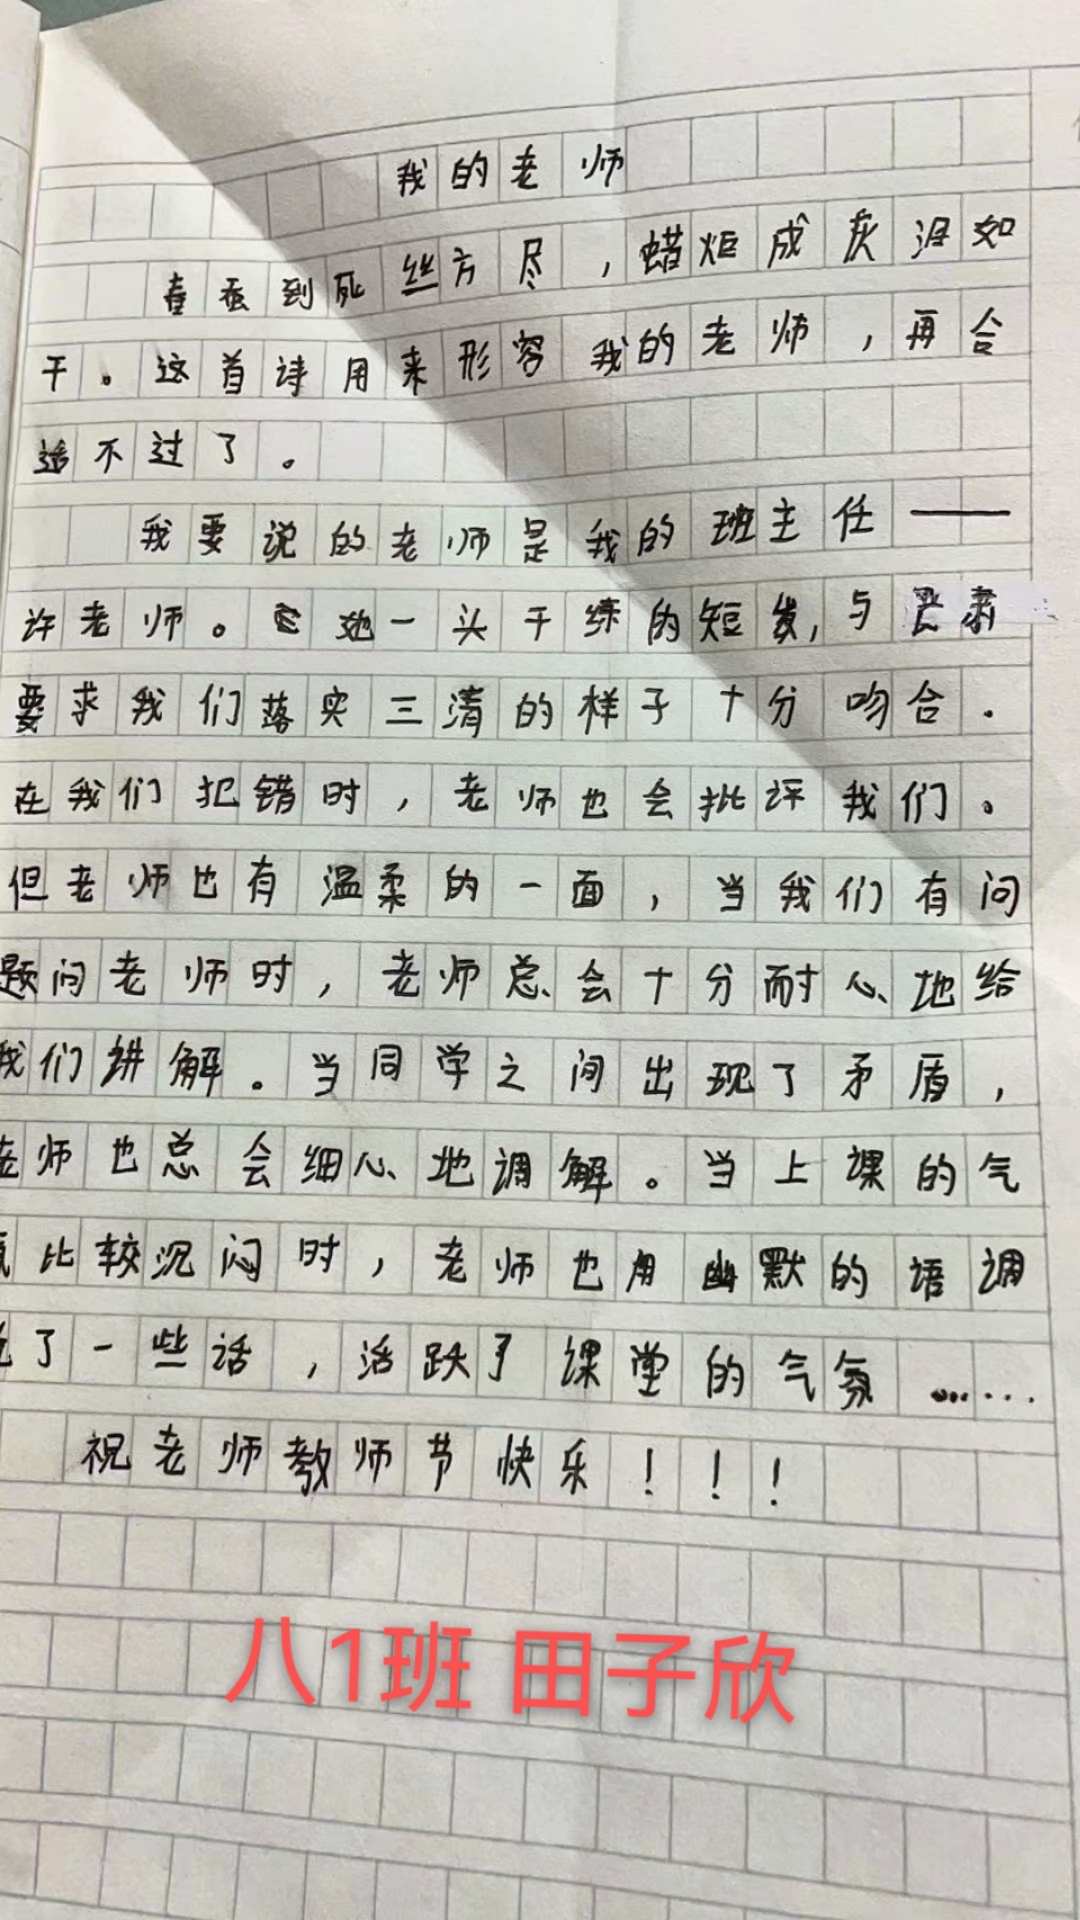 我的老师
春蚕到死丝方尽，蜡炬成灰泪如
干。这首诗用来形容我的老师，再合
适不过了。
我要说的老师是我的班主任——
许老师。她一头干练的短发，与严肃
要求我们落实三清的样子十分吻合.
在我们犯错时，老师也会批评我们。
但老师也有温柔的一面，当我们有问
题问老师时，老师总会十分耐心地给
我们讲解。当同学之间出现了矛盾，
老师也总会细心地调解。当上课的气
氛比较沉闷时，老师也用幽默的语调
说了一些话，活跃了课堂的气氛……
祝老师教师节快乐！！！
八1班 田子欣